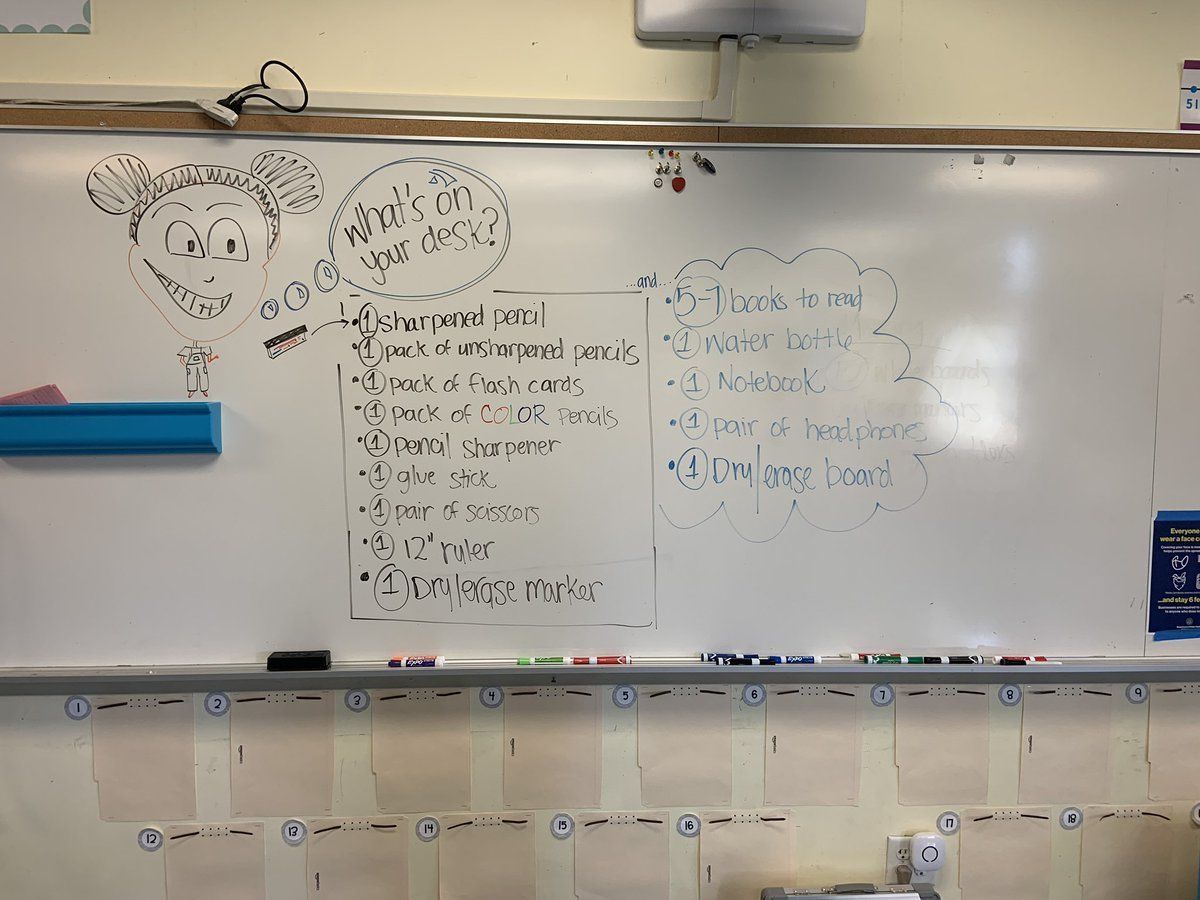 What's on
your desk?
• 1 sharpened pencil
• 1 pack of unsharpened pencils
• 1 pack of flash cards
• 1 pack of COLOR pencils
• 1 pencil sharpener
• 1 glue stick
• 1 pair of scissors
• 1 12" ruler
• 1 Dry/erase marker
...and...
• 5-7 books to read
• 1 Water bottle
• 1 Notebook
• 1 pair of headphones
• 1 Dry/erase board
51
Everyone
wear a face
...and stay 6
1 2 3 4 5 6 7 8 9
12 13 14 15 16 17 18